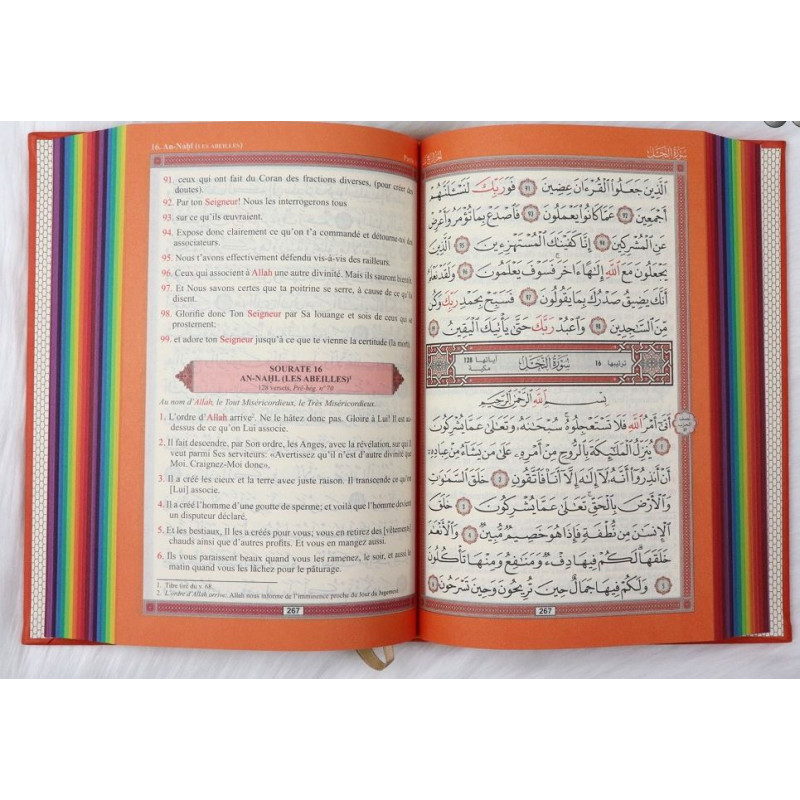 16. An-Naḥl (LES ABEILLES)
91. ceux qui ont fait du Coran des fractions diverses, (pour créer des
doutes).
92. Par ton Seigneur! Nous les interrogerons tous
93. sur ce qu'ils œuvraient.
94. Expose donc clairement ce qu'on t'a commandé et détourne-toi des
associateurs.
95. Nous t'avons effectivement défendu vis-à-vis des railleurs.
96. Ceux qui associent à Allah une autre divinité. Mais ils sauront bientôt
97. Et Nous savons certes que ta poitrine se serre, à cause de ce qu'ils
disent.
98. Glorifie donc Ton Seigneur par Sa louange et sois de ceux qui se
prosternent;
99. et adore ton Seigneur jusqu'à ce que te vienne la certitude (la mort).
SOURATE 16
AN-NAḤL (LES ABEILLES)¹
128 versets, Pré-hég. n° 70
Au nom d'Allah, le Tout Miséricordieux, le Très Miséricordieux.
1. L'ordre d'Allah arrive². Ne le hâtez donc pas. Gloire à Lui! Il est au-
dessus de ce qu'on Lui associe.
2. Il fait descendre, par Son ordre, les Anges, avec la révélation, sur qui Il
veut parmi Ses serviteurs: «Avertissez qu'il n'est d'autre divinité que
Moi. Craignez-Moi donc».
3. Il a créé les cieux et la terre avec juste raison. Il transcende ce qu'on
[Lui] associe.
4. Il a créé l'homme d'une goutte de sperme; et voilà que l'homme devient
un disputeur déclaré,
5. Et les bestiaux, Il les a créés pour vous; vous en retirez des [vêtements]
chauds ainsi que d'autres profits. Et vous en mangez aussi.
6. Ils vous paraissent beaux quand vous les ramenez, le soir, et aussi le
matin quand vous les lâchez pour le pâturage.
1. Titre tiré du v. 68.
2. L'ordre d'Allah arrive: Allah nous informe de l'imminence proche du Jour du Jugement.
267
سورة النحل
الَّذِينَ جَعَلُوا الْقُرْءَانَ عِضِينَ ٩١ فَوَرَبِّكَ لَنَسْـَٔلَنَّهُمْ
أَجْمَعِينَ ٩٢ عَمَّا كَانُوا يَعْمَلُونَ ٩٣ فَاصْدَعْ بِمَا تُؤْمَرُ وَأَعْرِضْ
عَنِ الْمُشْرِكِينَ ٩٤ إِنَّا كَفَيْنَاكَ الْمُسْتَهْزِءِينَ ٩٥ الَّذِينَ
يَجْعَلُونَ مَعَ اللَّهِ إِلَٰهًا ءَاخَرَ فَسَوْفَ يَعْلَمُونَ ٩٦ وَلَقَدْ نَعْلَمُ
أَنَّكَ يَضِيقُ صَدْرُكَ بِمَا يَقُولُونَ ٩٧ فَسَبِّحْ بِحَمْدِ رَبِّكَ وَكُن
مِّنَ السَّاجِدِينَ ٩٨ وَاعْبُدْ رَبَّكَ حَتَّىٰ يَأْتِيَكَ الْيَقِينُ ٩٩
ترتيبها 16 سورة النحل آياتها 128 مكية
بِسْمِ اللَّهِ الرَّحْمَٰنِ الرَّحِيمِ
أَتَىٰ أَمْرُ اللَّهِ فَلَا تَسْتَعْجِلُوهُ سُبْحَانَهُ وَتَعَالَىٰ عَمَّا يُشْرِكُونَ
١ يُنَزِّلُ الْمَلَائِكَةَ بِالرُّوحِ مِنْ أَمْرِهِ عَلَىٰ مَن يَشَاءُ مِنْ عِبَادِهِ
أَنْ أَنذِرُوا أَنَّهُ لَا إِلَٰهَ إِلَّا أَنَا فَاتَّقُونِ ٢ خَلَقَ السَّمَاوَاتِ
وَالْأَرْضَ بِالْحَقِّ تَعَالَىٰ عَمَّا يُشْرِكُونَ ٣ خَلَقَ
الْإِنسَانَ مِن نُّطْفَةٍ فَإِذَا هُوَ خَصِيمٌ مُّبِينٌ ٤ وَالْأَنْعَامَ
خَلَقَهَا لَكُمْ فِيهَا دِفْءٌ وَمَنَافِعُ وَمِنْهَا تَأْكُلُونَ
٥ وَلَكُمْ فِيهَا جَمَالٌ حِينَ تُرِيحُونَ وَحِينَ تَسْرَحُونَ ٦
267